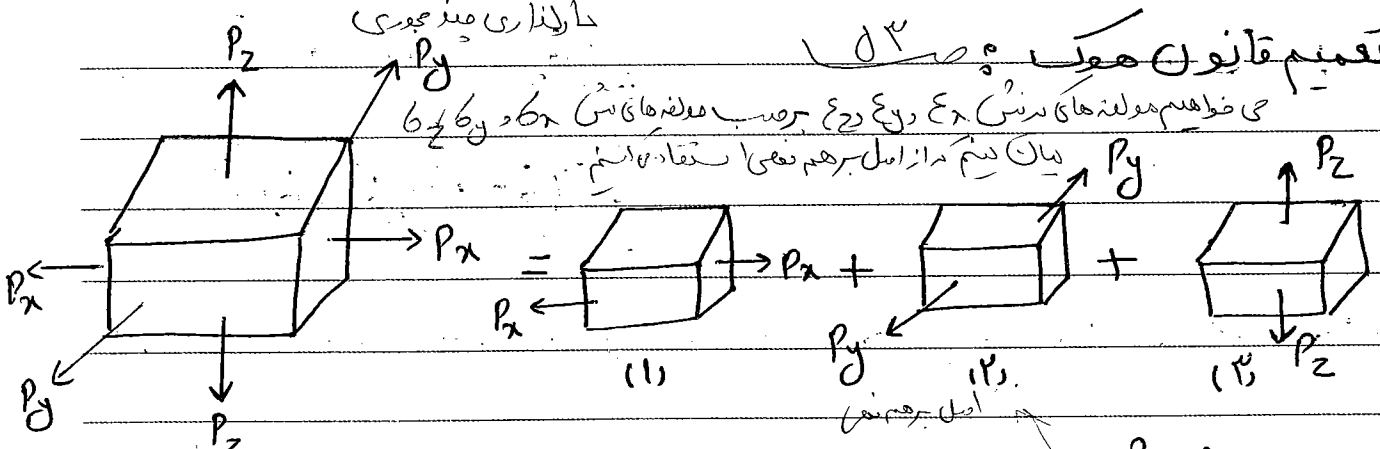 بارگذاری چند محوری
تعمیم قانون هوک :
می خواهیم مولفه های کرنش εx و εy و εz برحسب مولفه های تنش σx و σy و σz
بیان کنیم که از اصل برهم نهی استفاده می کنیم.
Pz Py
Px Px
Py Pz
=
Px Px
+
Py Py
+
Pz Pz
(۱) (۲) (۳)
اصل برهم نهی